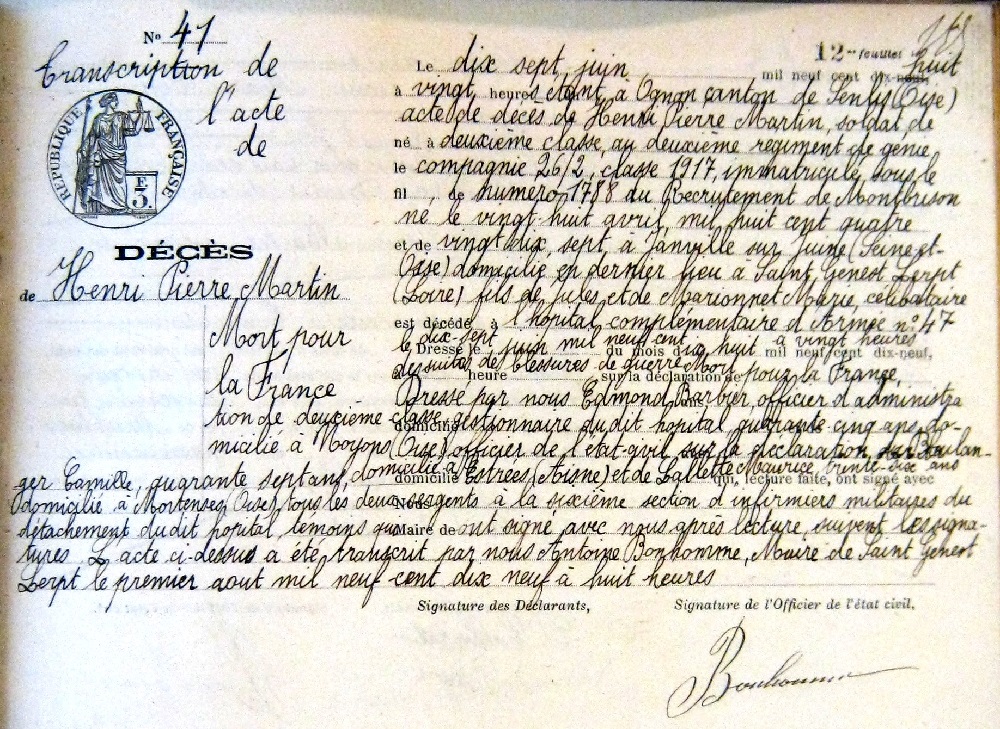 N° 41
Transcription de
l'acte
de
RÉPUBLIQUE FRANÇAISE
DÉCÈS
de Henri Pierre Martin
Mort pour
la France
12me feuillet
Le dix sept juin mil neuf cent dix-neuf huit
à vingt heures étant à Ognon canton de Senlis (Oise)
acte de décès de Henri Pierre Martin, soldat de
né à deuxième classe, au deuxième régiment de génie,
le compagnie 26/2, classe 1917, immatriculé sous le
fil de numéro 1788 du Recrutement de Montbrison
né le vingt huit avril mil huit cent quatre
et de vingt dix sept à Janville sur Juine (Seine et-
Oise) domicilié en dernier lieu à Saint Genest Lerpt
(Loire) fils de Jules et de Marionnet Marie, célibataire
est décédé à l'hôpital complémentaire d'Armée n° 47
le dix-sept juin mil neuf cent dix huit à vingt heures
Dressé le du mois d mil neuf cent dix-neuf,
des suites de blessures de guerre Mort pour la France,
heure sur la déclaration de
Dressé par nous Edmond Barbier, officier d'administra
tion de deuxième classe, gestionnaire dudit hôpital quarante cinq ans, do-
domicilié
micilié à Noyons (Oise) officier de l'état-civil sur la déclaration de Boulan-
ger Camille, quarante sept ans, domicilié à Estrées (Aisne) et de Lallette Maurice, trente-dix ans
domicilié qui, lecture faite, ont signé avec
domicilié à (Oise) tous les deux sergents à la sixième section d'infirmiers militaires du
Nous
détachement dudit hôpital témoins qui ont signé avec nous après lecture, suivent les signa-
Maire de
tures L'acte ci-dessus a été transcrit par nous Antoine Bonhomme, Maire de Saint Genest
Lerpt le premier aout mil neuf cent dix neuf à huit heures
Signature des Déclarants, Signature de l'Officier de l'état civil,
Bonhomme